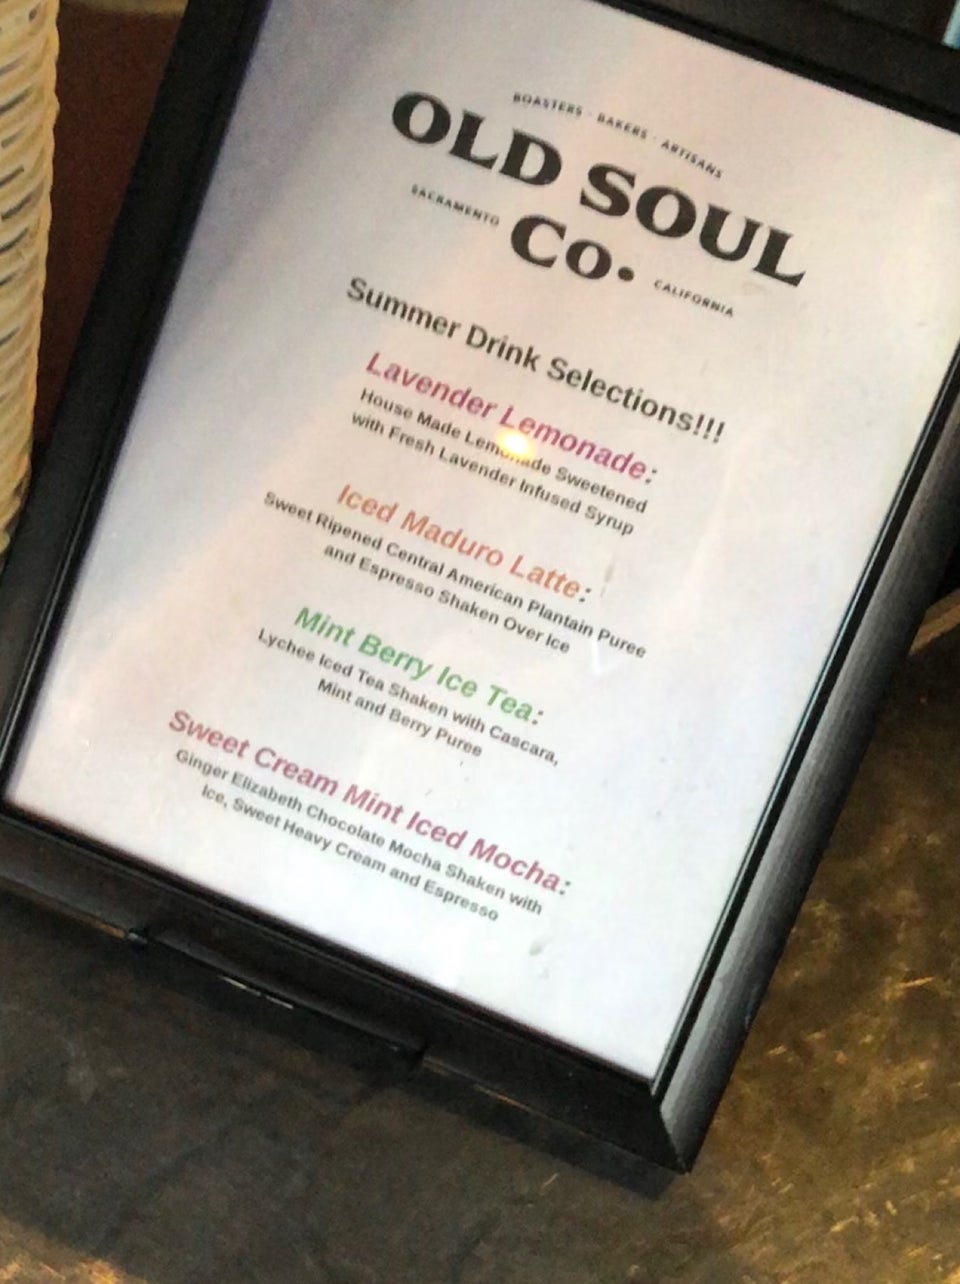 ROASTERS · BAKERS · ARTISANS
OLD SOUL
SACRAMENTO
Co.
CALIFORNIA
Summer Drink Selections!!!
Lavender Lemonade:
House Made Lemonade Sweetened
with Fresh Lavender Infused Syrup
Iced Maduro Latte:
Sweet Ripened Central American Plantain Puree
and Espresso Shaken Over Ice
Mint Berry Ice Tea:
Lychee Iced Tea Shaken with Cascara,
Mint and Berry Puree
Sweet Cream Mint Iced Mocha:
Ginger Elizabeth Chocolate Mocha Shaken with
Ice, Sweet Heavy Cream and Espresso